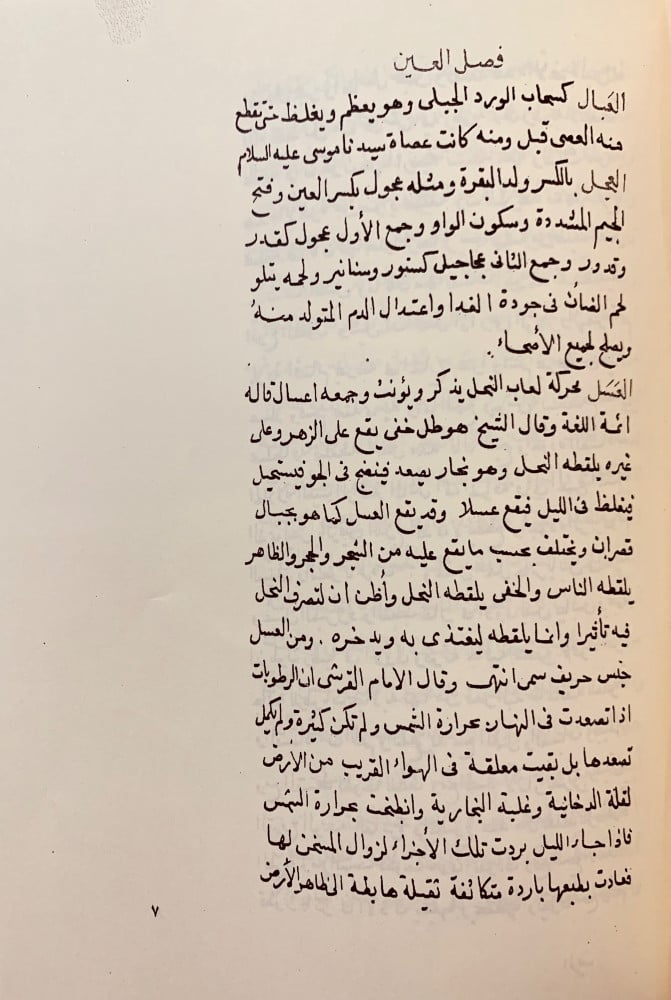 فصل العين
العَبال كسحاب الورد الجبلى وهو يعظم ويغلظ حتى تقطع
منه العصى قيل ومنه كانت عصاة سيدنا موسى عليه السلام
العجل بالكسر ولد البقرة ومثله عجول بكسر العين وفتح
الجيم المشددة وسكون الواو وجمع الأول عجول كقدر
وقدور وجمع الثانى عجاجيل كسنور وسنانير ولحمه يتلو
لحم الضأن فى جودة الغدا واعتدال الدم المتولد منهُ
ويصلح لجميع الأصحاء .
العَسَل محركة لعاب النحل يذكر ويؤنث وجمعه اعسال قاله
ائمة اللغة وقال الشيخ هو طل خفى يقع على الزهر وعلى
غيره يلقطه النحل وهو بخار يصعد فينضج فى الجو فيستحيل
فيغلظ فى الليل فيقع عسلا وقد يقع العسل كما هو بجبال
قصران ويختلف بحسب ما يقع عليه من الشجر والحجر والظاهر
يلقطه الناس والخفى يلقطه النحل وأظن ان لتصرف النحل
فيه تأثيرا وانما يلقطه ليغتذى به ويدخره . ومن العسل
جنس حريف سمى انتهى وقال الامام القرشى ان الرطوبات
اذا تصعدت فى النهار بحرارة الشمس ولم تكن كثيرة ولم يكمل
تصعدها بل بقيت معلقة فى الهواء القريب من الأرض
لقلة الدخانية وغلبة البخارية وانطبخت بحرارة الشمس
فاذا جاء الليل بردت تلك الأجزاء لزوال المسخن لها
فعادت بطبعها باردة متكاثفة ثقيلة هابطة الى ظاهر الأرض
٧